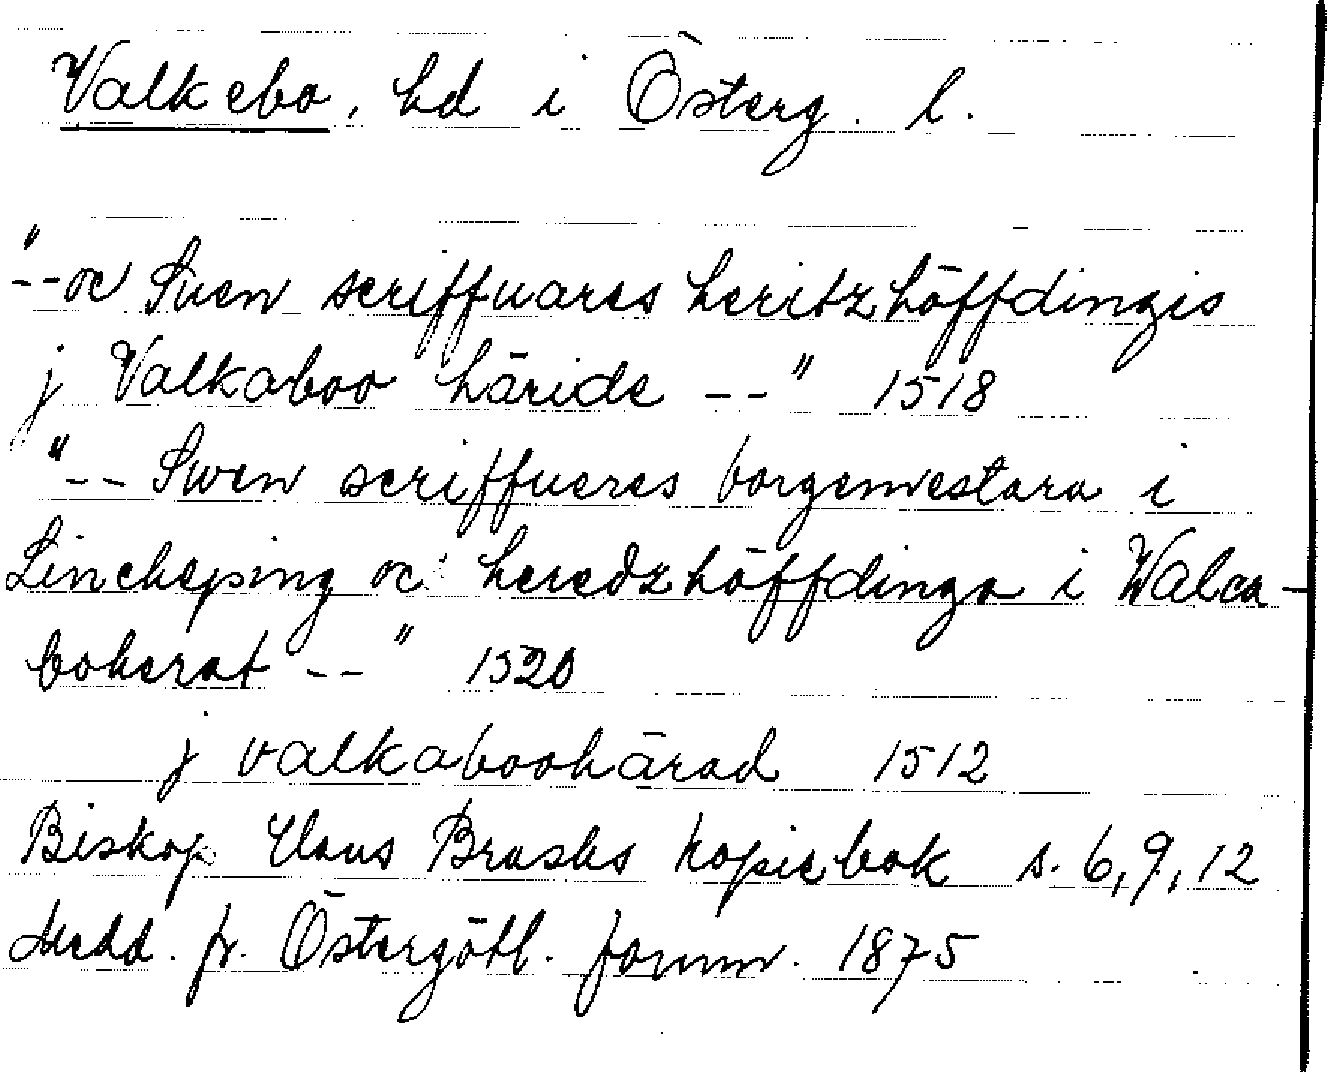 Valkebo, hd i Österg. l.
"--oc Suen scriffuares heritzhöffdingis
j Valkaboo häride --" 1518
"-- Swen scriffueres borgemestara i
Lincheping oc heredzhöffdinga i Walca-
boherat --" 1520
j valkaboohärad 1512
Biskop Hans Brasks kopiebok s. 6,9,12
Medd. fr. Östergötl. fornm. 1875